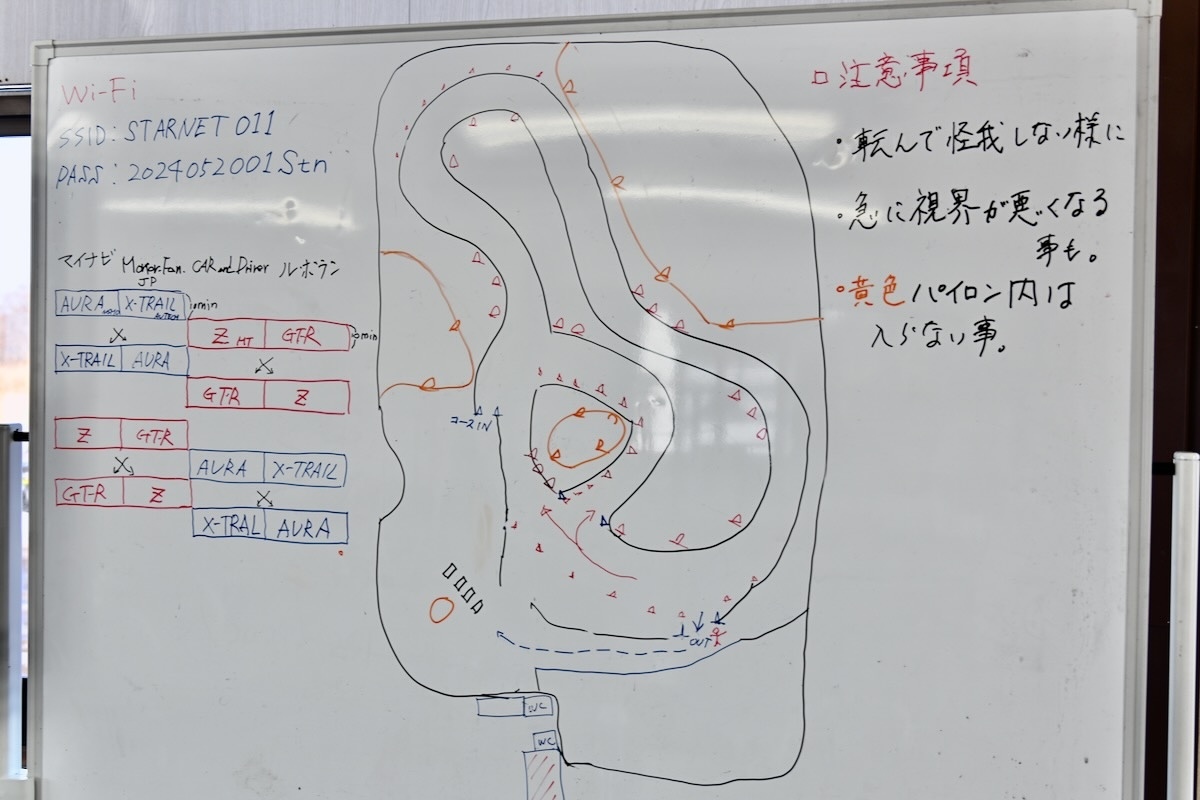 Wi-Fi
SSID: STARNET 011
PASS: 2024052001Stn
マイナビ Motor Fan. JP CAR and Driver ルボラン
AURA NISMO X-TRAIL AUTECH
Z MT GT-R
X-TRAIL AURA
GT-R Z
Z GT-R
AURA X-TRAIL
GT-R Z
X-TRAL AURA
コースIN
OUT
WC
WC
注意事項
・転んで怪我しない様に
・急に視界が悪くなる
事も。
・黄色パイロン内は
入らない事。